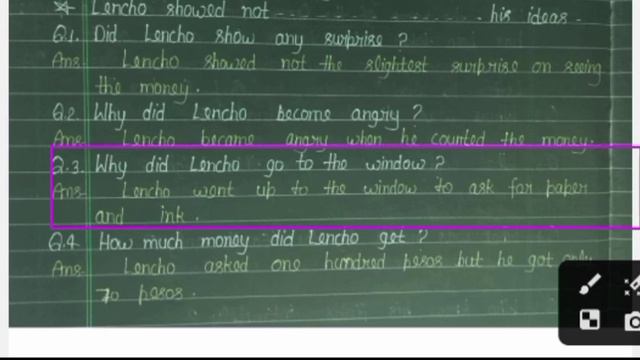 * Lencho showed not ............... his ideas.
Q.1. Did Lencho show any surprise ?
Ans. Lencho showed not the slightest surprise on seeing
the money.
Q.2. Why did Lencho become angry ?
Ans. Lencho became angry when he counted the money.
Q.3. Why did Lencho go to the window ?
Ans. Lencho went up to the window to ask for paper
and ink.
Q.4. How much money did Lencho get ?
Ans. Lencho asked one hundred pesos but he got only
70 pesos.